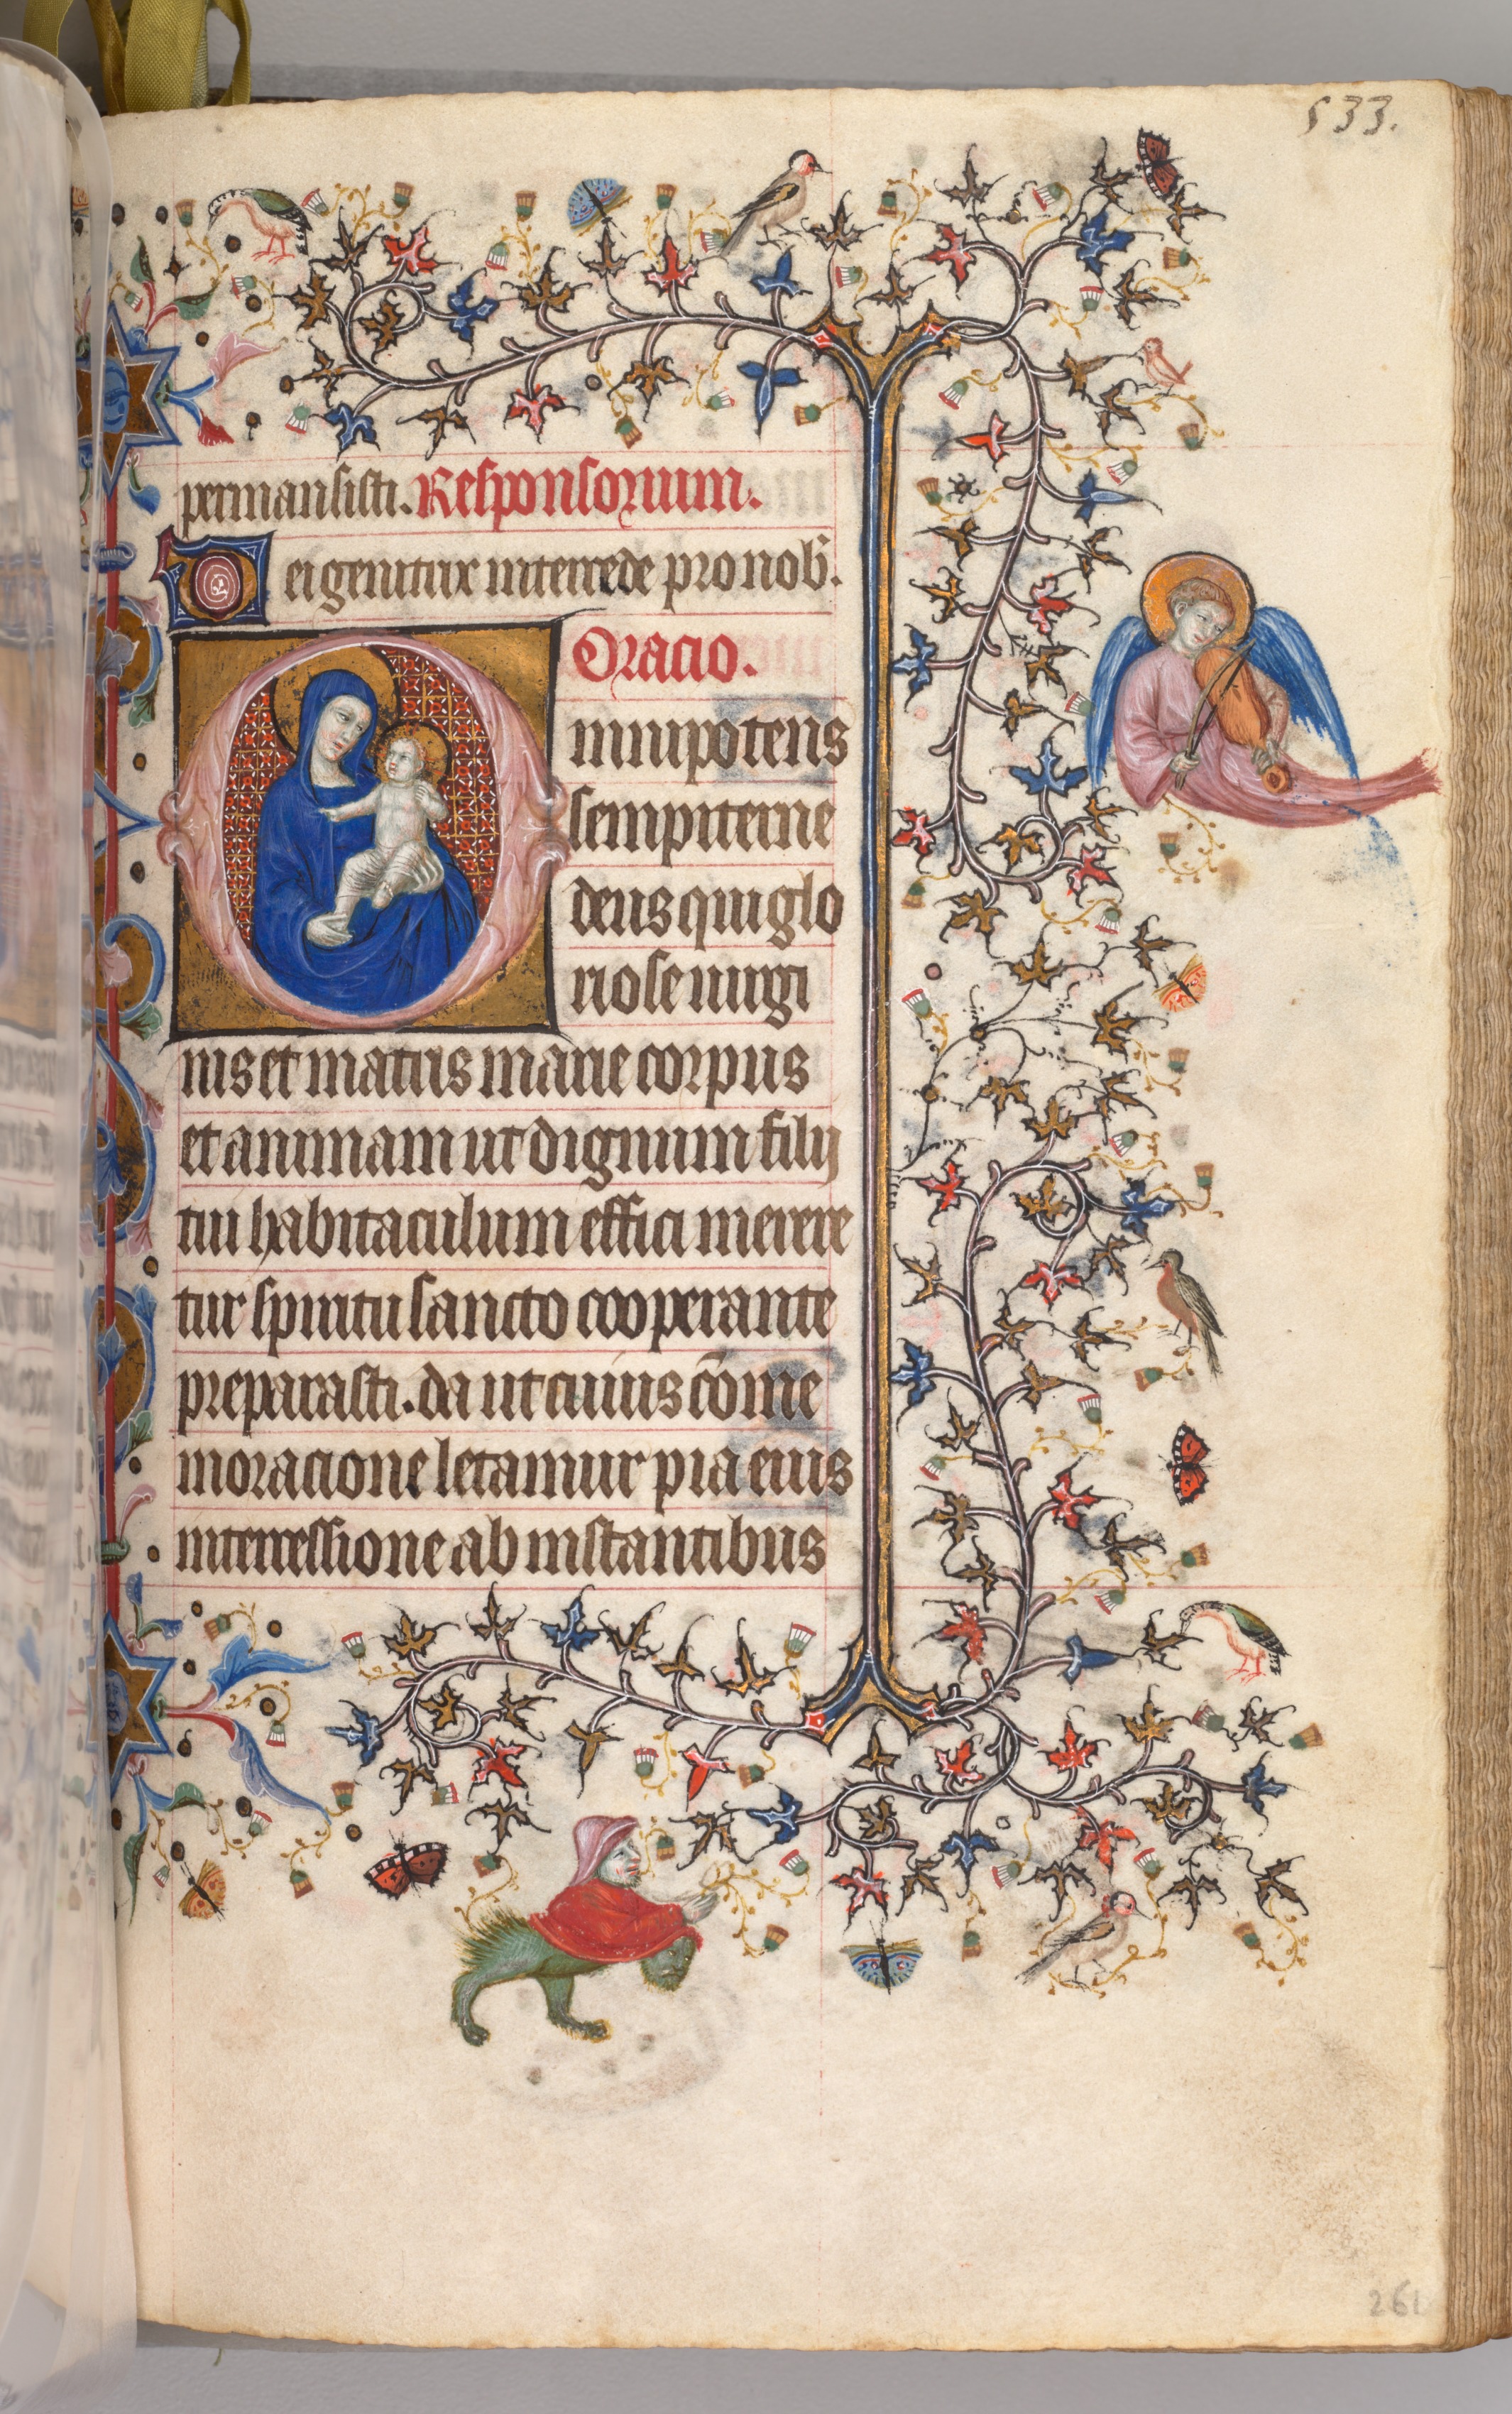 533.
permansisti. Responsorium.
Dei genitrix intercede pro nob̅.
Oracio.
Omnipotens
sempiterne
deus qui glo
riose uirgi
nis et matris marie corpus
et animam ut dignum filij
tui habitaculum effici merere
tur spiritu sancto cooperante
preparasti. da ut cuius co̅me
moracione letamur pia eius
intercessione ab instantibus
261